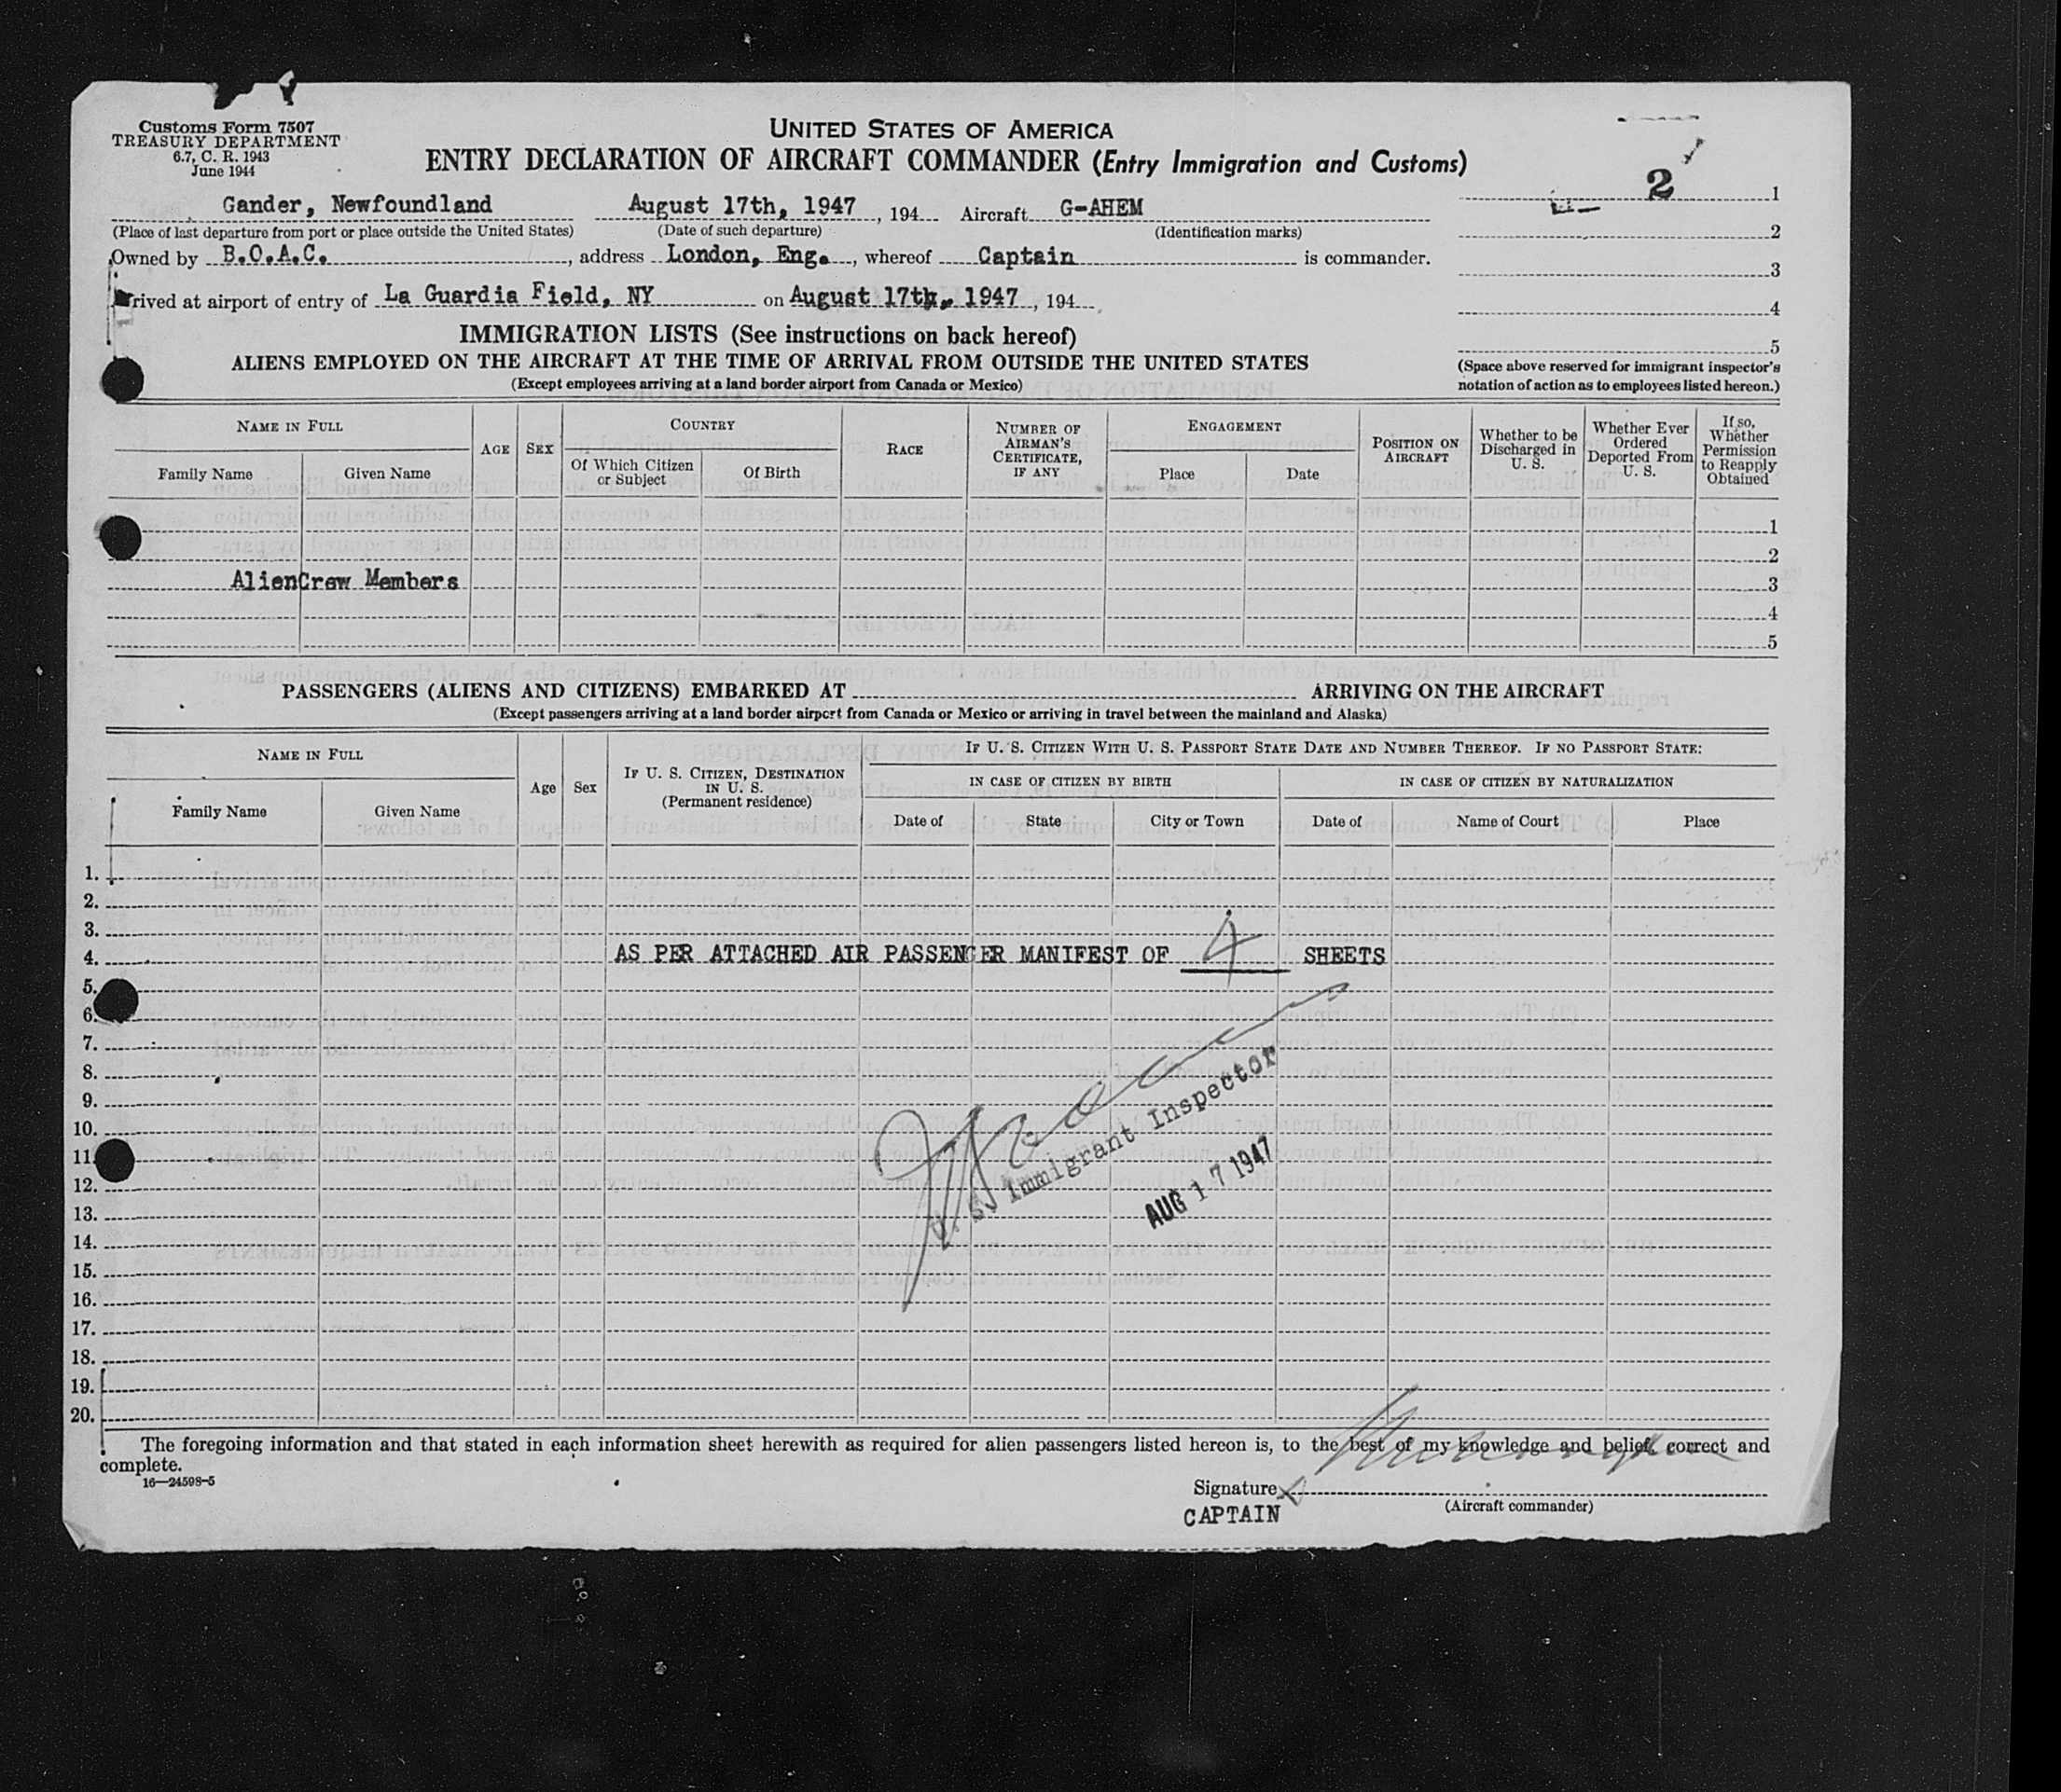 Customs Form 7507
TREASURY DEPARTMENT
6.7, C. R. 1943
June 1944
UNITED STATES OF AMERICA
ENTRY DECLARATION OF AIRCRAFT COMMANDER (Entry Immigration and Customs)
2 1
Gander, Newfoundland August 17th, 1947, 194 Aircraft G-AHEM
(Place of last departure from port or place outside the United States) (Date of such departure) (Identification marks)
2
Owned by B.O.A.C., address London, Eng., whereof Captain is commander.
3
rived at airport of entry of La Guardia Field, NY on August 17th, 1947, 194
4
IMMIGRATION LISTS (See instructions on back hereof)
5
ALIENS EMPLOYED ON THE AIRCRAFT AT THE TIME OF ARRIVAL FROM OUTSIDE THE UNITED STATES
(Except employees arriving at a land border airport from Canada or Mexico)
(Space above reserved for immigrant inspector's
notation of action as to employees listed hereon.)
NAME IN FULL
Family Name Given Name
AGE
SEX
COUNTRY
Of Which Citizen
or Subject
Of Birth
RACE
NUMBER OF
AIRMAN'S
CERTIFICATE,
IF ANY
ENGAGEMENT
Place Date
POSITION ON
AIRCRAFT
Whether to be
Discharged in
U. S.
Whether Ever
Ordered
Deported From
U. S.
If so,
Whether
Permission
to Reapply
Obtained
1
2
AlienCrew Members 3
4
5
PASSENGERS (ALIENS AND CITIZENS) EMBARKED AT ARRIVING ON THE AIRCRAFT
(Except passengers arriving at a land border airport from Canada or Mexico or arriving in travel between the mainland and Alaska)
NAME IN FULL
Family Name Given Name
Age
Sex
IF U. S. CITIZEN, DESTINATION
IN U. S.
(Permanent residence)
IF U. S. CITIZEN WITH U. S. PASSPORT STATE DATE AND NUMBER THEREOF. IF NO PASSPORT STATE:
IN CASE OF CITIZEN BY BIRTH IN CASE OF CITIZEN BY NATURALIZATION
Date of State City or Town Date of Name of Court Place
1.
2.
3.
4. AS PER ATTACHED AIR PASSENGER MANIFEST OF 4 SHEETS
5.
6.
7.
8.
9.
10.
11.
12.
13.
14.
15.
16.
17.
18.
19.
20.
U. S. Immigrant Inspector
AUG 17 1947
The foregoing information and that stated in each information sheet herewith as required for alien passengers listed hereon is, to the best of my knowledge and belief, correct and
complete.
16—24598-5
Signature X
(Aircraft commander)
CAPTAIN